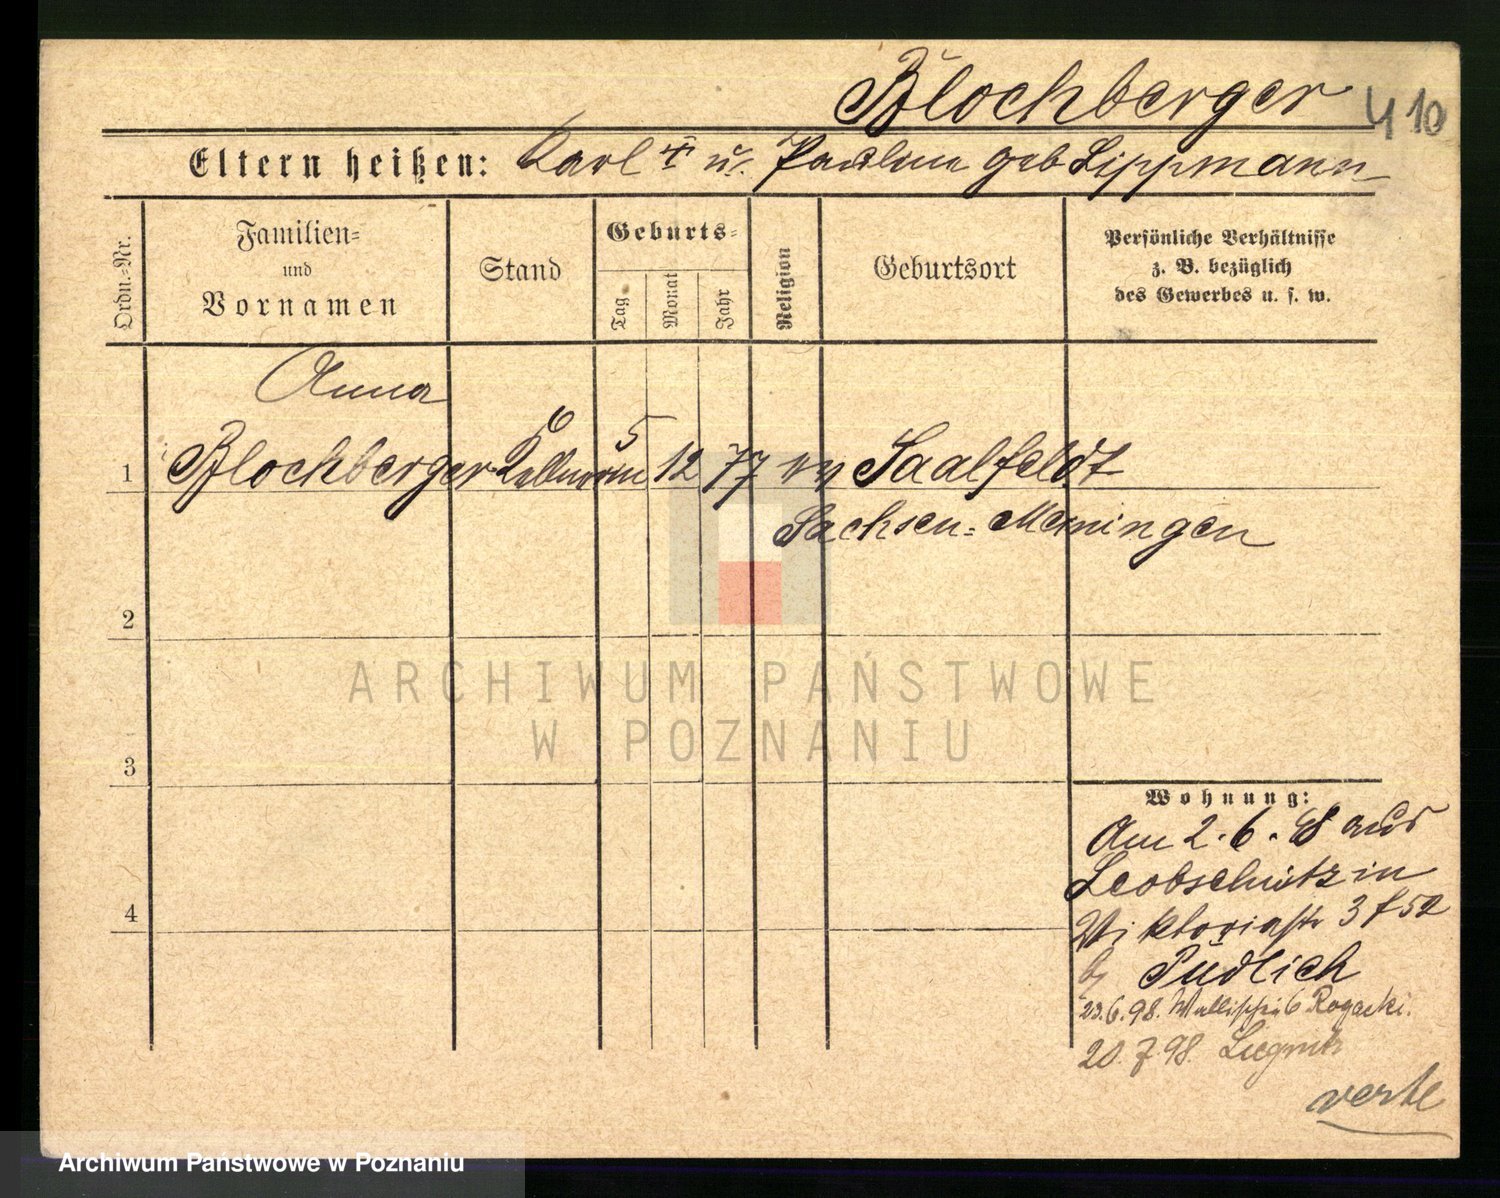 Blochberger
410
Eltern heißen: Karl † u. Pauline geb Lippmann
Ordn.-Nr.
Familien- und Vornamen
Stand
Geburts-
Tag
Monat
Jahr
Religion
Geburtsort
Persönliche Verhältnisse
z. B. bezüglich
des Gewerbes u. s. w.
Anna
1 Blochberger Kellnerin 5 12 77 ev Saalfeldt
Sachsen-Meiningen
2
3
4
Wohnung:
Am 2.6.98 aus
Leobschütz in
Viktoriastr
b/ Püdlich
23.6.98. Rogacki.
20.7.98. Liegnitz
verte
ARCHIWUM PAŃSTWOWE
W POZNANIU
Archiwum Państwowe w Poznaniu